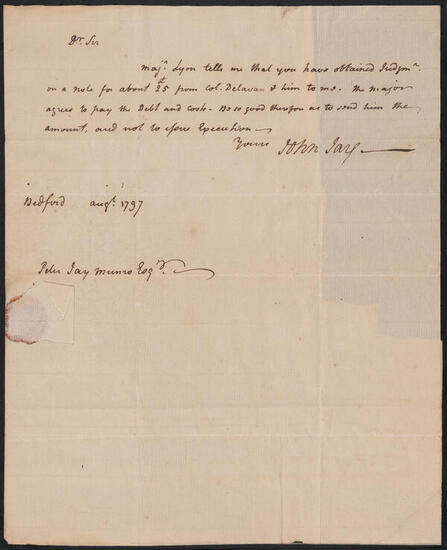 Dr. Sir
Majr. Lyon tells me that you have obtained Judgmt.
on a note for about £25 from Col. Delavan & him to me. The major
agrees to pay the Debt and costs. Be so good therefore as to send him the
amount, and not to issue Execution—
Yours John Jay—
Bedford augt. 1797
Peter Jay Munro Esqr.